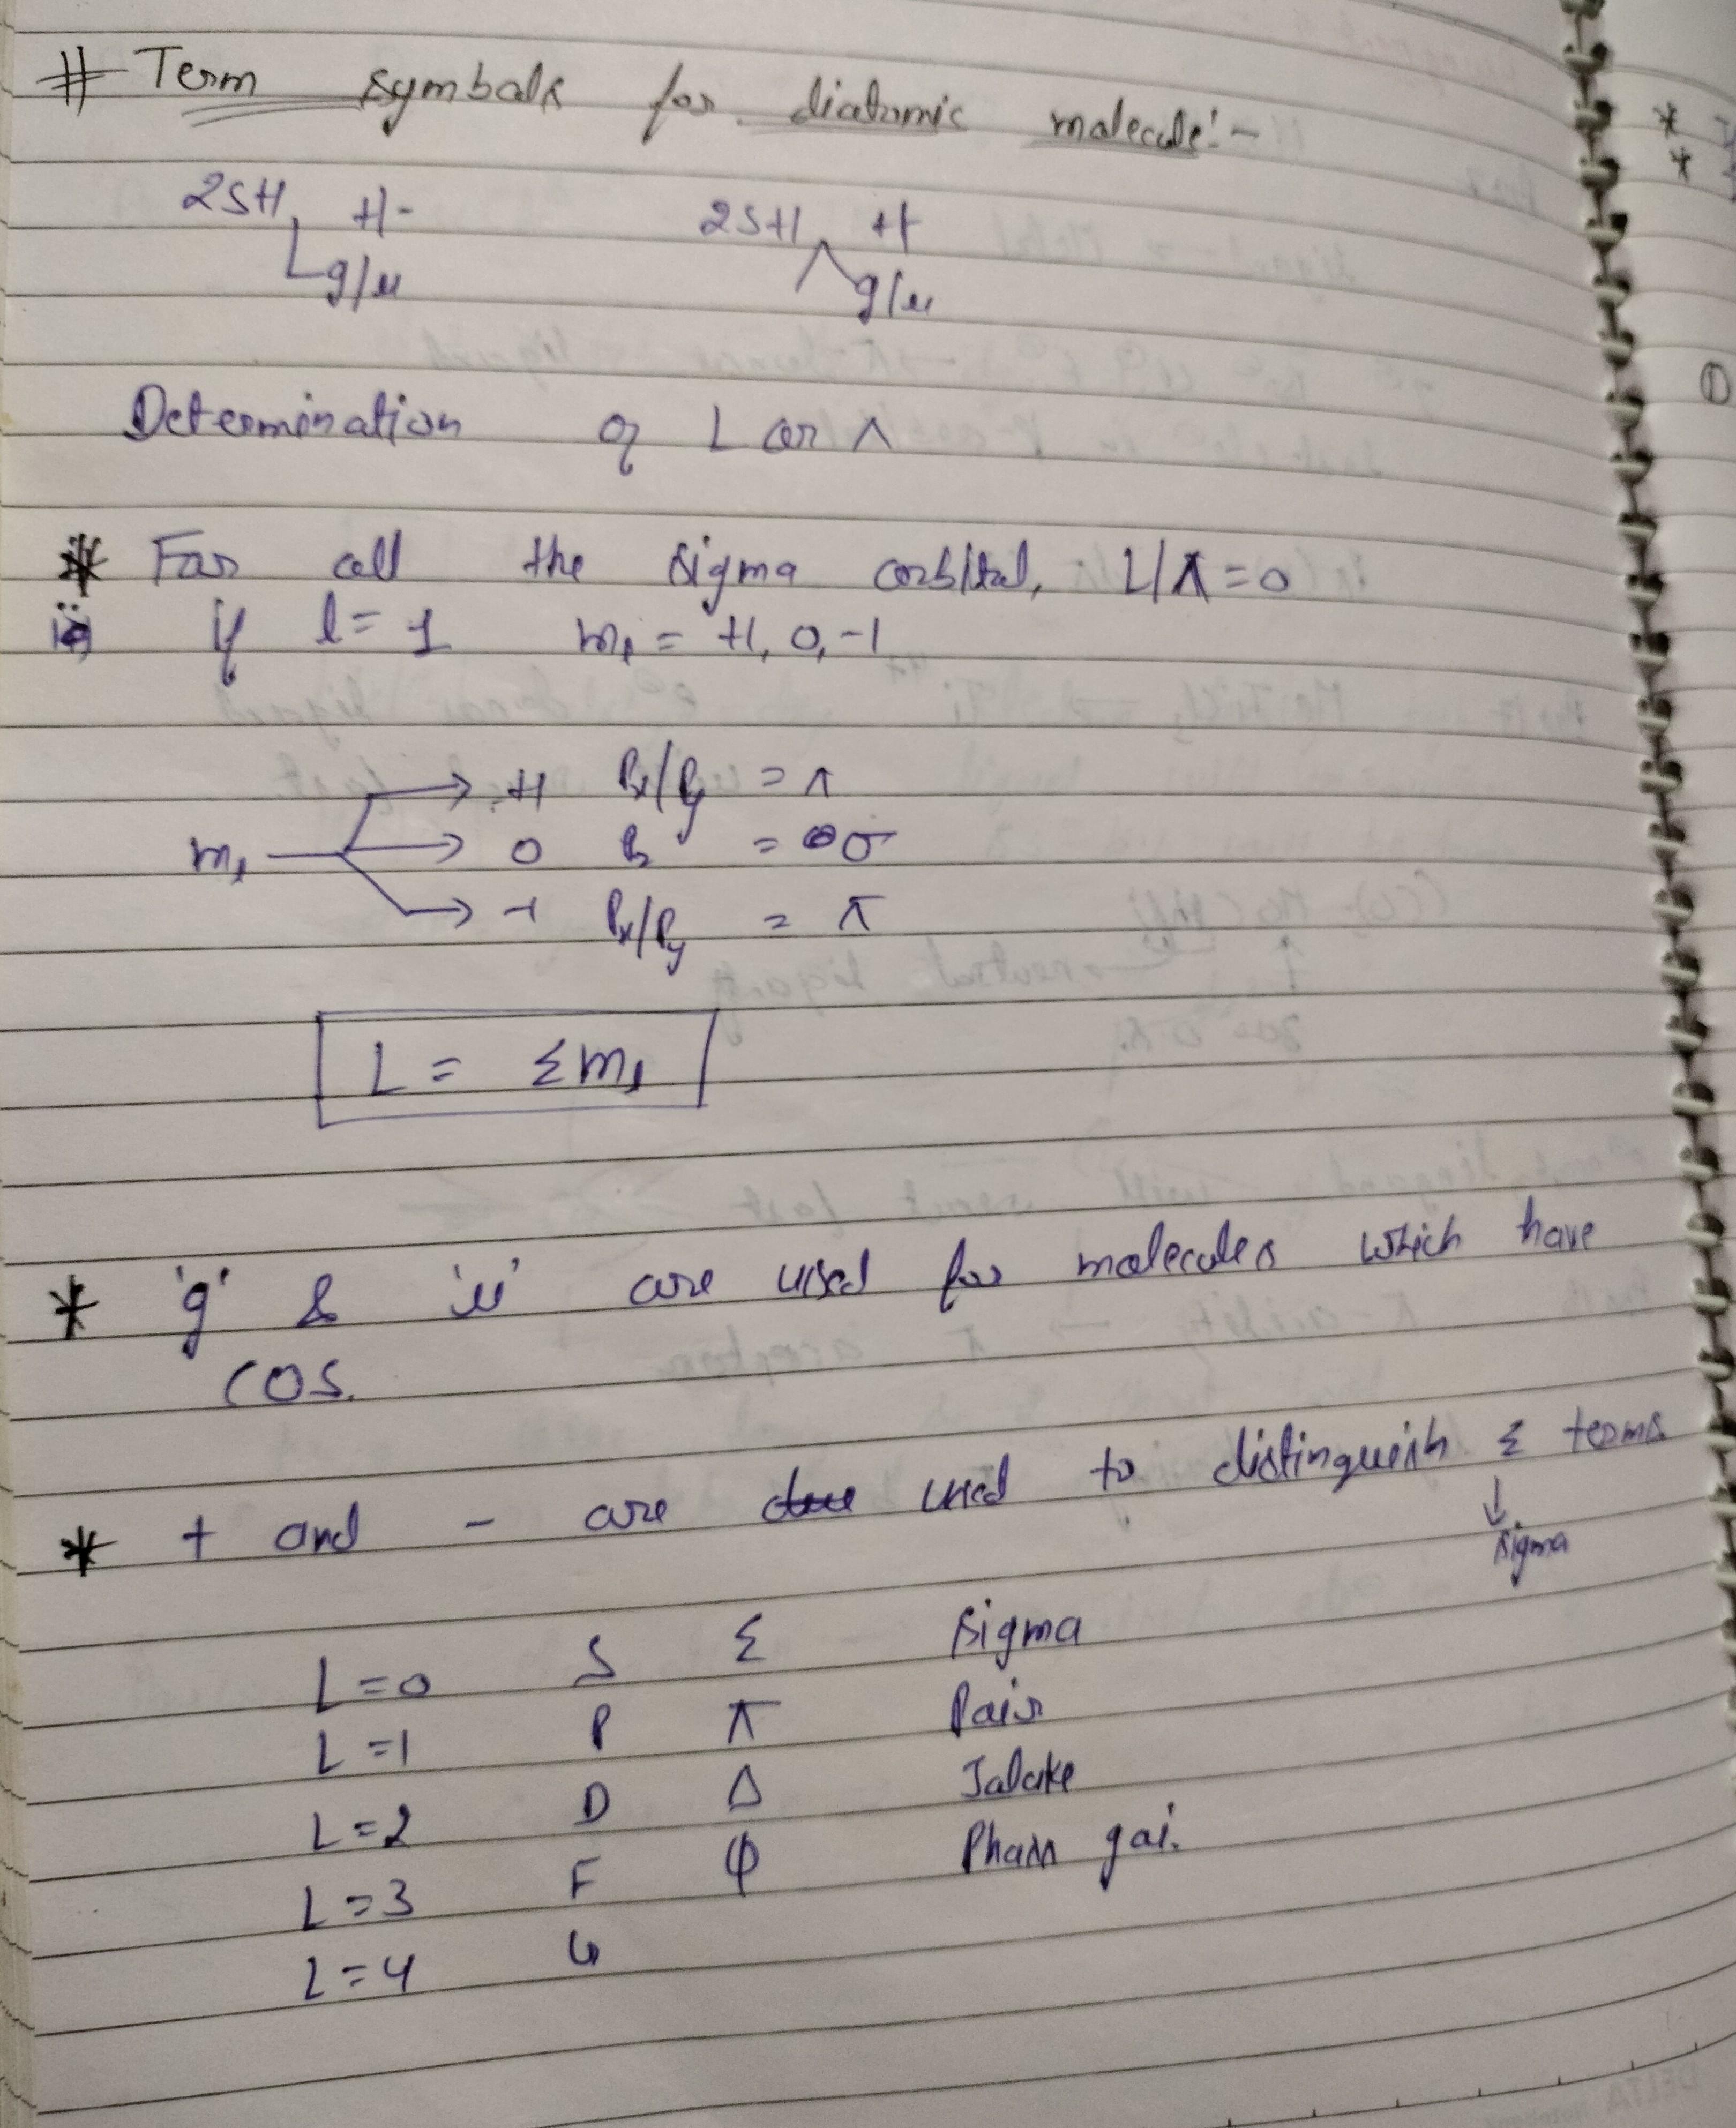 # Term symbols for diatomic molecule:-
2S+1 L +/- g/u 2S+1 Λ +/- g/u
Determination of L or Λ
* For all the sigma orbital, L/Λ = 0
ii) if l = 1 m_l = +1, 0, -1
→ +1 Px/Py = π
m_l → 0 Pz = σ
→ -1 Px/Py = π
L = Σm_l
* 'g' & 'u' are used for molecules which have
COS.
* + and - are used to distinguish Σ terms
↓
sigma
L=0 S Σ Sigma
L=1 P π Pair
L=2 D Δ Jalake
L=3 F Φ Phass gai.
L=4 G
DELTA